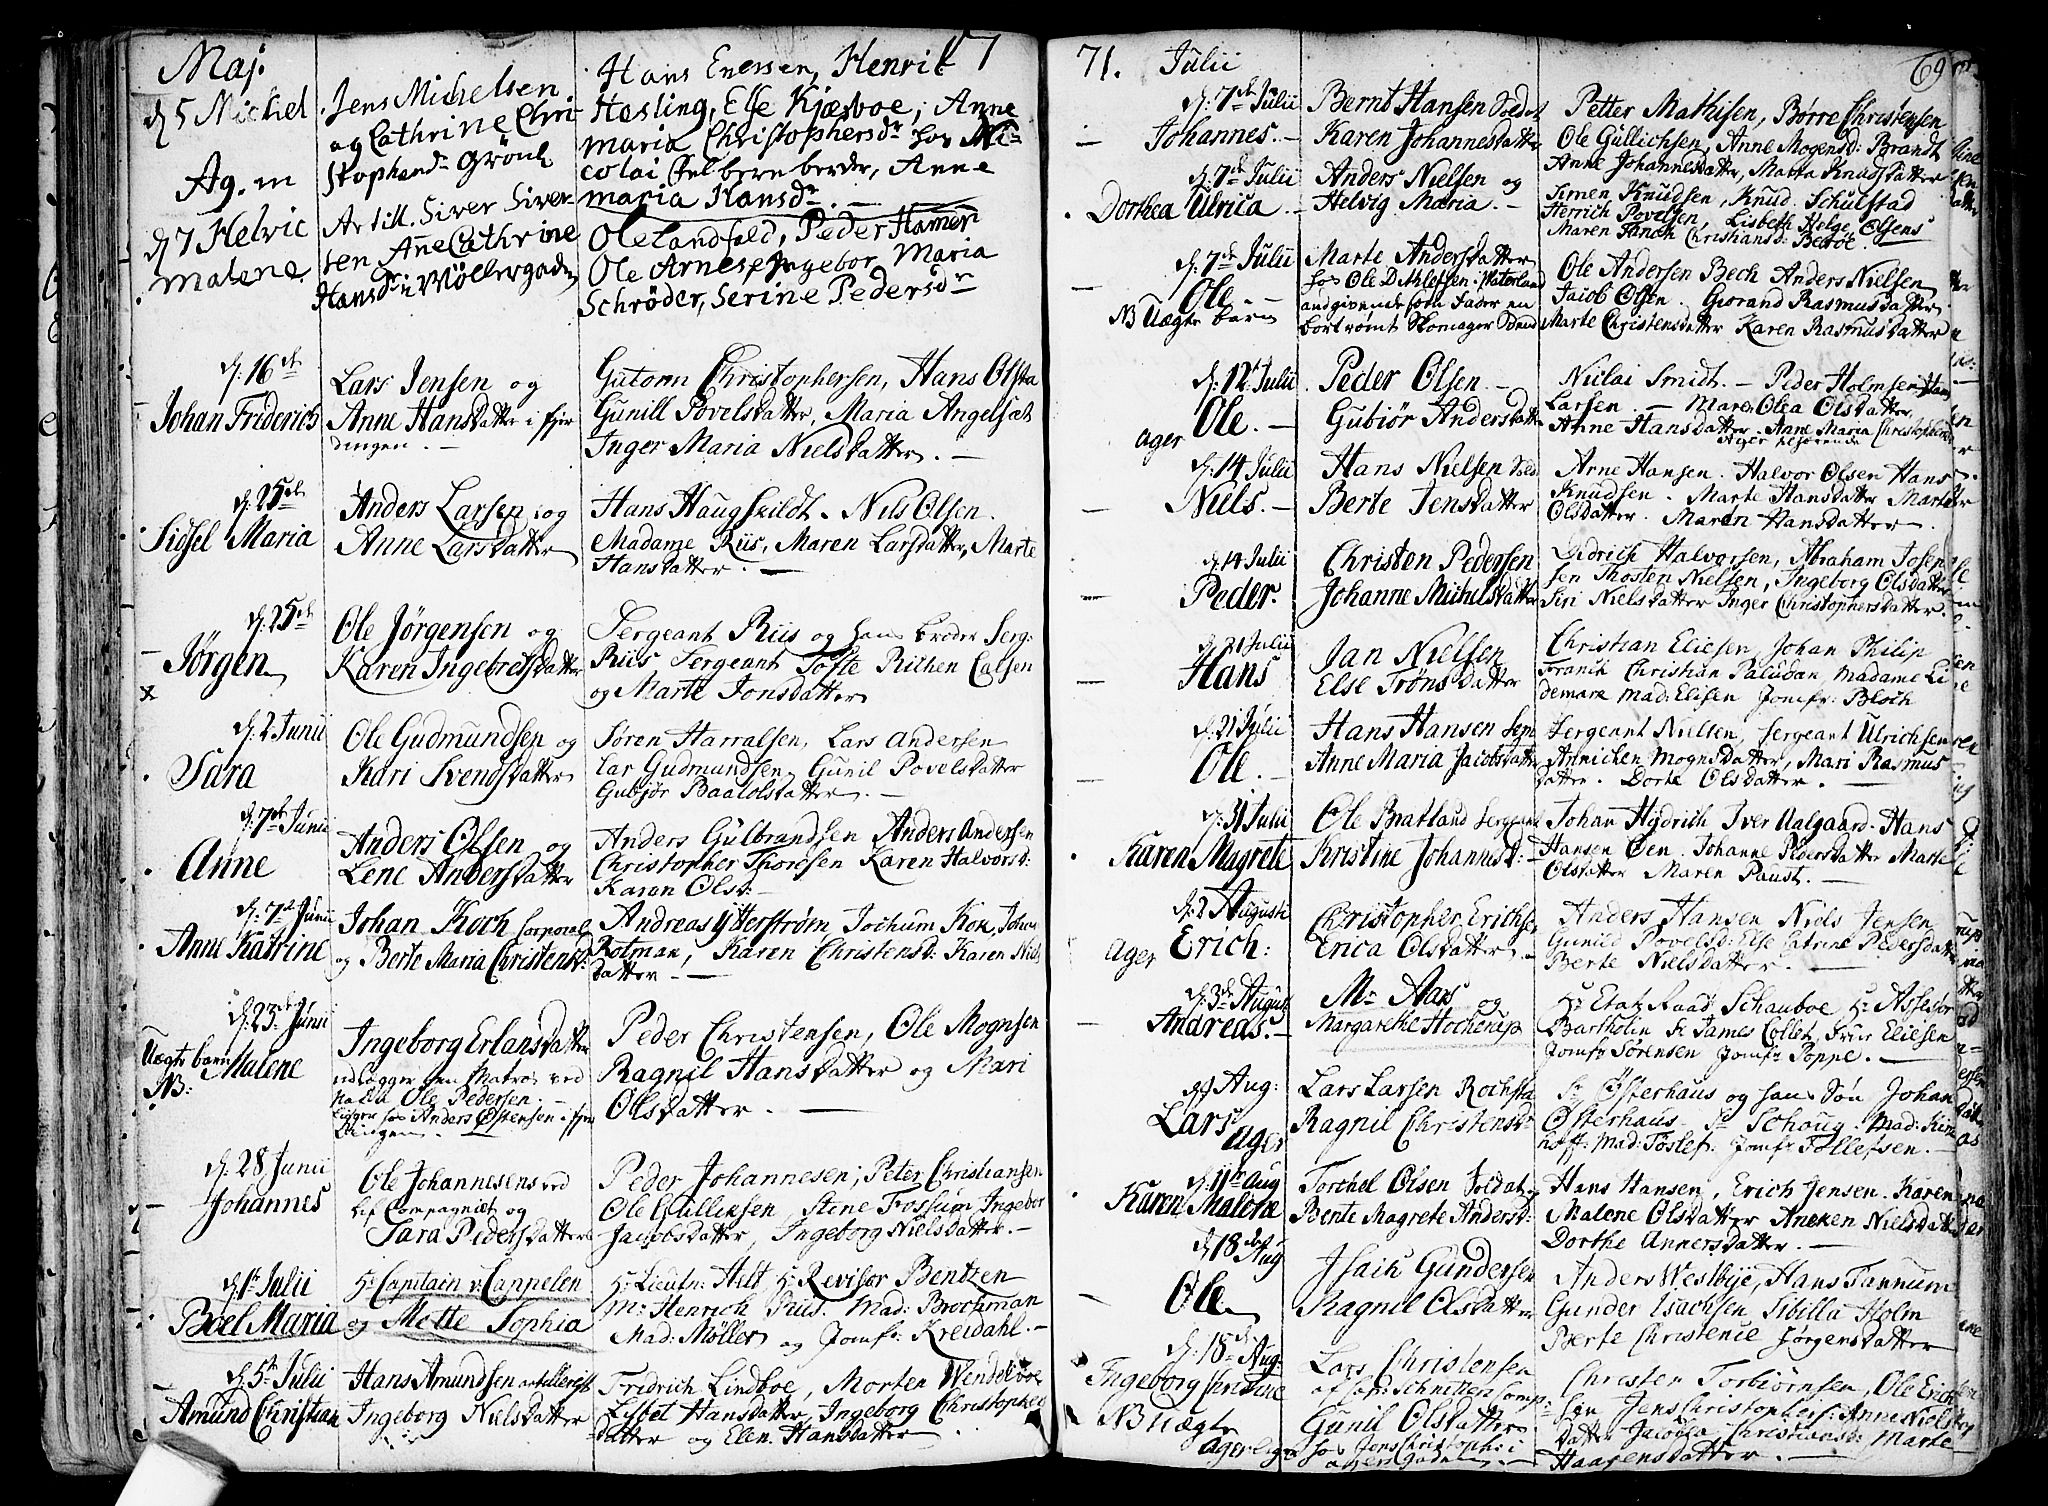 Maj. 17
d 5 Michel
Jens Michelsen
og Cathrine Chri
stophersd. Grönli
Hans Enersen, Henrik
Hesling, Else Kjæsboe, Anne
maria Christophersdr hos Ni=
colai
maria Hansdr. —
Ag. m
d 7 Helvic
Malene
Artill. Siver Siver
sen Anne Cathrine
Hansdr i Möllergaden
Ole Landfald, Peder Hamer
Ole Arnesen Ingebor Maria
Schrøder, Serine Pedersdr
d. 16de
Johan Friderich
Lars Jensen og
Anne Hansdatter i fjer
dingen. —
Gutorm Christophersen, Hans Olsta
Gunill Povelsdatter, Maria Angelsæt
Inger Maria Nielsdatter. —
d. 25de
Sidsel Maria
Anders Larsen og
Anne Larsdatter
Hans Haugskildt. Nils Olsen.
Madame Riis, Maren Larsdatter, Marte
Hansdatter. —
d. 25de
Jørgen
x
Ole Jørgensen og
Karen Ingebretsdatter
Sergeant Riis og hans broder Serg:
Riis Sergeant Tofte Rithen Calsen
og Marte Jonsdatter
d. 2 Junii
Sara
Ole Gudmundsen og
Kari Svendsdatter
Søren Harralsen, Lars Andersen
Lar Gudmundsen Gunil Povelsdatter
Gubjør Baarolsdatter. —
d. 7de Junii
Anne
Anders Olsen og
Lene Andersdatter
Anders Gulbrandsen Anders Andersen
Christopher Thorsen Karen Halvorsd:
Karen Olsd: —
d. 7de Junii
Anne Katrine
Johan Koch Corporal
og Berte Maria Christensd:
Andreas Ytterstrøm Jochum Kok, Johan
Rotman, Karen Christensd: Karen Niels
datter — —
d. 23de Junii
Uægte barn Malene
NB:
Ingeborg Erlandsdatter
udlægger en Matros ved
navn Ole Pedersen. —
ligger hos Anders Østensen i fjer
dingen. —
Peder Christensen, Ole Mognsen
Ragnil Hansdatter og Mari
Olsdatter. —
d. 28 Junii
Johannes
Ole Johannesens ved
lif Compagniet og
Sara Pedersdatter
Peder Johannesen, Peter Christiansen
Ole Gulliksen, Stene Fossum, Ingebor
Jacobsdatter, Ingeborg Nielsdatter. —
d. 1te Julii
Boel Maria
Hr Capitain v. Cappelen
og Mette Sophia
Hr Lieutn: Helt Hr Revisor Bentzen
Mr Henrich Riis. Mad: Brochman
Mad: Møller og Jomfr: Kreidahl. —
d. 5te Julii
Amund Christian
Hans Amundsen artillerist
Ingeborg Nielsdatter
Fridrich Lindboe, Morten Wendelboe
Lisbet Hansdatter, Ingeborg Christophers
datter og Ellen Hansdatter.
71. Julii 69
d. 7de Julii
Johannes. —
Bernt Hansen Soldat
Karen Johannesdatter
Petter Mathisen, Børre Christensen
Ole Gullichsen, Anne Mogensd: Brandt
Anne Johannesdatter, Marta Knudsdatter
d. 7de Julii
Dorthea Ulrica. —
Anders Nielsen og
Helvig Maria. —
Simen Knudsen, Knud Schulstad
Herrich Povelsen, Lisbeth Helge Olsens
Maren Christiansd:
d. 7de Julii
Ole. —
NB Uægte barn
Marte Andersdatter
hos Ole Dithlefsen i Vaterland
andgivende som fader en
bortrømt Skomager
Ole Andersen Bech Anders Nielsen
Jacob Olsen. Giorand Rasmusdatter
Marte Christensdatter Karen Rasmusdatter
d. 12te Julii
Ole. —
Ager
Peder Olsen. —
Gubiør Andersdatter
Niclai Smidt. — Peder Holmsen Hans
Larsen. — Maren Olea Olsdatter
Anne Hansdatter. Anne Maria Christophersd
d. 14 Julii
Niels. —
Hans Nielsen Sold
Berte Jensdatter
Arne Hansen. Halvor Olsen Hans
Knudsen. Marte Hansdatter Marte
Olsdatter. Maren Hansdatter.
d. 14 Julii
Peder.
Christen Pedersen
Johanne Michelsdatter
Didrich Halvorsen, Abraham Josen
sen Thosten Nielsen, Ingeborg Olsdatter
Siri Nielsdatter Inger Christophersdatter.
d. 21 Julii
Hans
Jan Nielsen
Else Trønsdatter
Christian Eliesen, Johan Philip
Franck Christian Paludan, Madame Li
demark Mad: Elisen Jomfr: Bloch
d. 21 Julii
Ole. —
Hans Hansen
Anne Maria Jacobsdatter
Sergeant Nielsen, Sergeant Ulrichsen
Annichen Mognsdatter, Mari Rasmus
datter. Dorte Olsdatter. —
d. 31 Julii
Karen Magrete
Ole Bratland Sergeant
Kristine Johannisd: —
Johan Hydrich Iver Aalgaard. Hans
Hansen Øen. Johanne Pedersdatter Marte
Olsdatter Maren Paust. —
d. 2 Augusti
Ager Erich:
Christopher Erichsen
Erica Olsdatter. —
Anders Hansen Niels Jensen
Gunild Povelsd: Else Catrine Pedersdatter
Berte Nielsdatter. —
d. 3de Augusti
Andreas. —
Mr Aars og
Margarethe Hocherup
Hr Etats Raad Schauboe, Hr Assessor
Bartholin Hr James Collet, Frue Eliesen
Jomfr Sørensen Jomfr Poppe. —
d. Aug:
Lars
Ager
Lars Larsen Rochsta
Ragnil Christensdr
Sr Osterhaus og hans Søn Johan
Osterhaus Sr Schoug. Mad: Kirk
hoff: Mad: Jomfr Tollefsen. —
d. 11te Aug
Karen Malena
Torchel Olsen Soldat
Bente Magrete Andersd:
Hans Hansen, Erich Jensen. Karen
Malene Olsdatter Aneken Nielsdatter
Dorthe Annersdatter. —
d. 18de Aug
Ole
Isaih Gundersen
Ragnil Olsdatter
Anders Westbye, Hans Tannum
Gunder Isachsen, Sibilla Holm
Berte Christence Jørgensdatter
d. 18de Aug.
Ingeborg Christine
NB Uægte
Ager
Lars Christensen
af Capt: Schnitters Comp:
Gunil Olsdatter
hos Jens Christophs: i
Christen Torbiørnsen, Ole Erich
sen Jens Christophers: Anne Niels
datter Jacobsa Christiansd: Marte
Haagensdatter. —